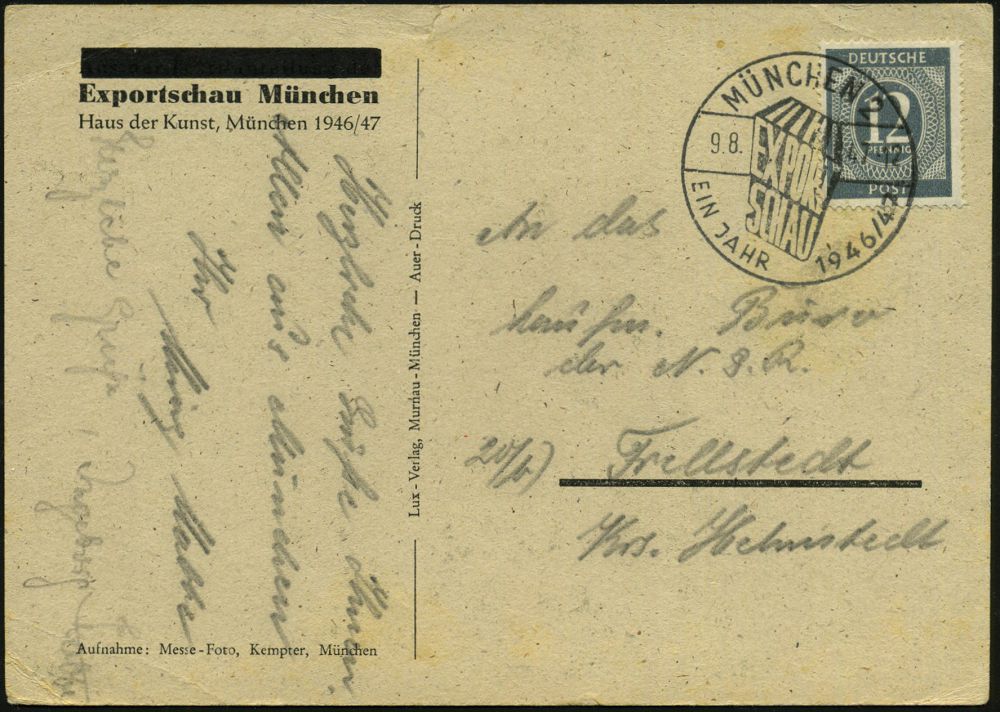 Exportschau München
Haus der Kunst, München 1946/47
Herzliche Grüße Ihnen
Allen aus München
Ihr
Herzliche Grüße
Aufnahme: Messe-Foto, Kempter, München
Lux-Verlag, Murnau-München — Auer-Druck
MÜNCHEN 2
9.8. 47
EXPORT
SCHAU
EIN JAHR 1946/47
DEUTSCHE
12
PFENNIG
POST
An das
kaufm. Büro
der N. S. R.
20/b) Frellstedt
Krs. Helmstedt